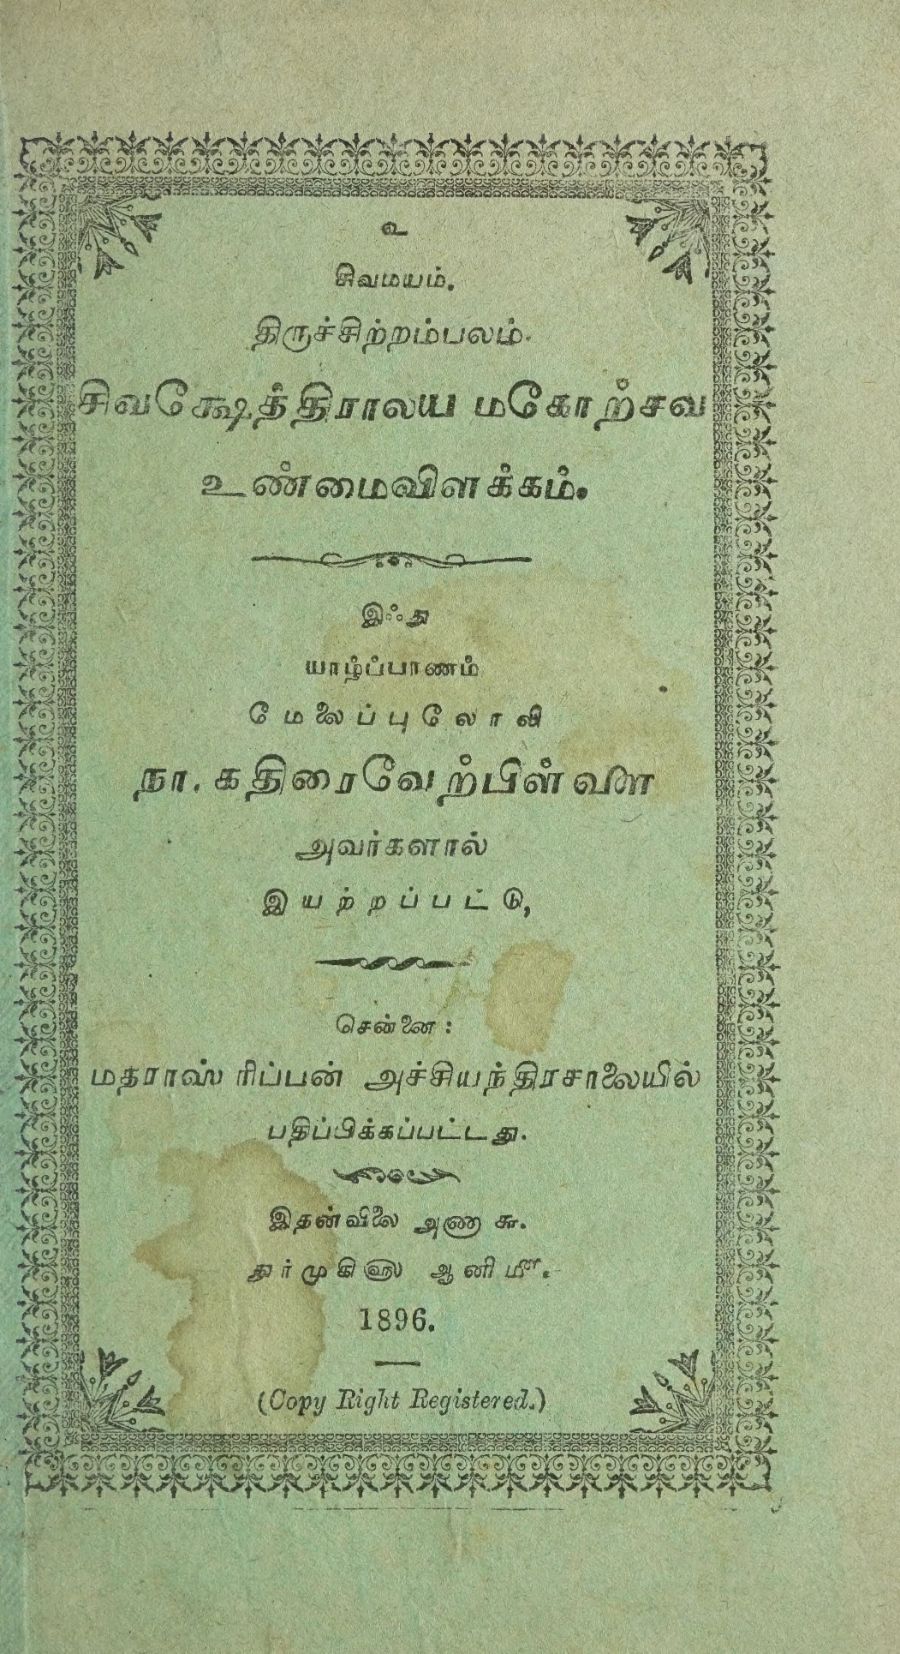 உ
சிவமயம்.
திருச்சிற்றம்பலம்.
சிவக்ஷேத்திராலய மகோற்சவ
உண்மைவிளக்கம்.
இஃது
யாழ்ப்பாணம்
மேலைப்புலோலி
நா. கதிரைவேற்பிள்ளை
அவர்களால்
இயற்றப்பட்டு,
சென்னை:
மதராஸ் ரிப்பன் அச்சியந்திரசாலையில்
பதிப்பிக்கப்பட்டது.
இதன்விலை அணா ௬.
துர்முகி௵ ஆனி௴.
1896.
(Copy Right Registered.)